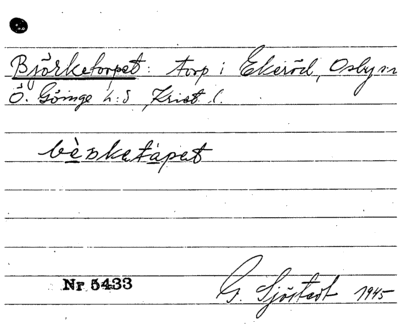 Björketorpet: torp i Ekeröd, Osby sn
Ö. Göinge h:d Krist. l.
bèrketåpet
Nr 5433
G. Sjöstedt 1945